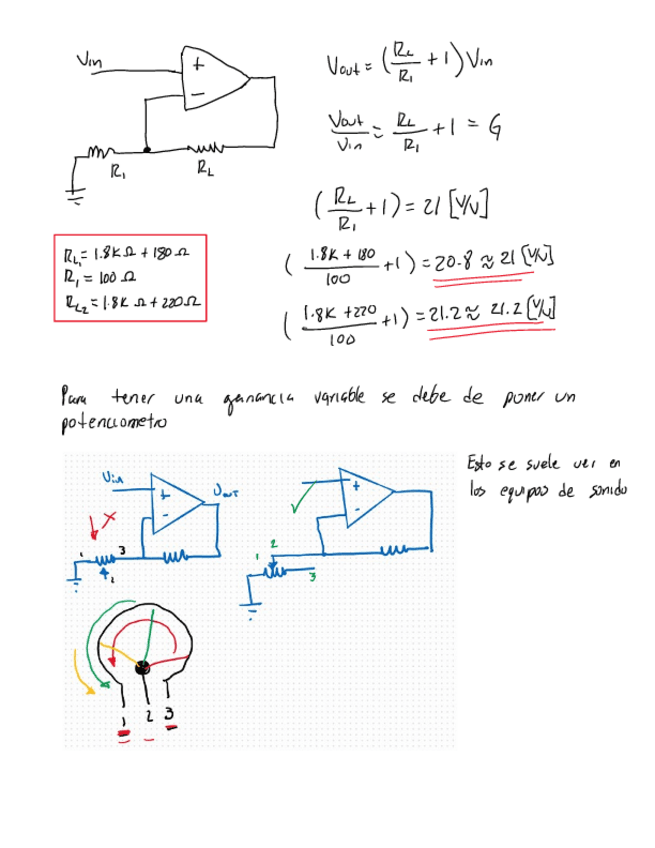 Vin
+
-
R₁
RL
Vout = (RL/R₁ + 1) Vin
Vout/Vin = RL/R₁ + 1 = G
(RL/R₁ + 1) = 21 [V/V]
RL₁ = 1.8K Ω + 180 Ω
R₁ = 100 Ω
RL₂ = 1.8K Ω + 220 Ω
(1.8K + 180/100 + 1) = 20.8 ≈ 21 [V/V]
(1.8K + 220/100 + 1) = 21.2 ≈ 21.2 [V/V]
Para tener una ganancia variable se debe de poner un
potenciometro
Esto se suele ver en
los equipos de sonido
Vin
+
-
Vout
X
1
3
2
+
-
✓
1
2
3
1 2 3